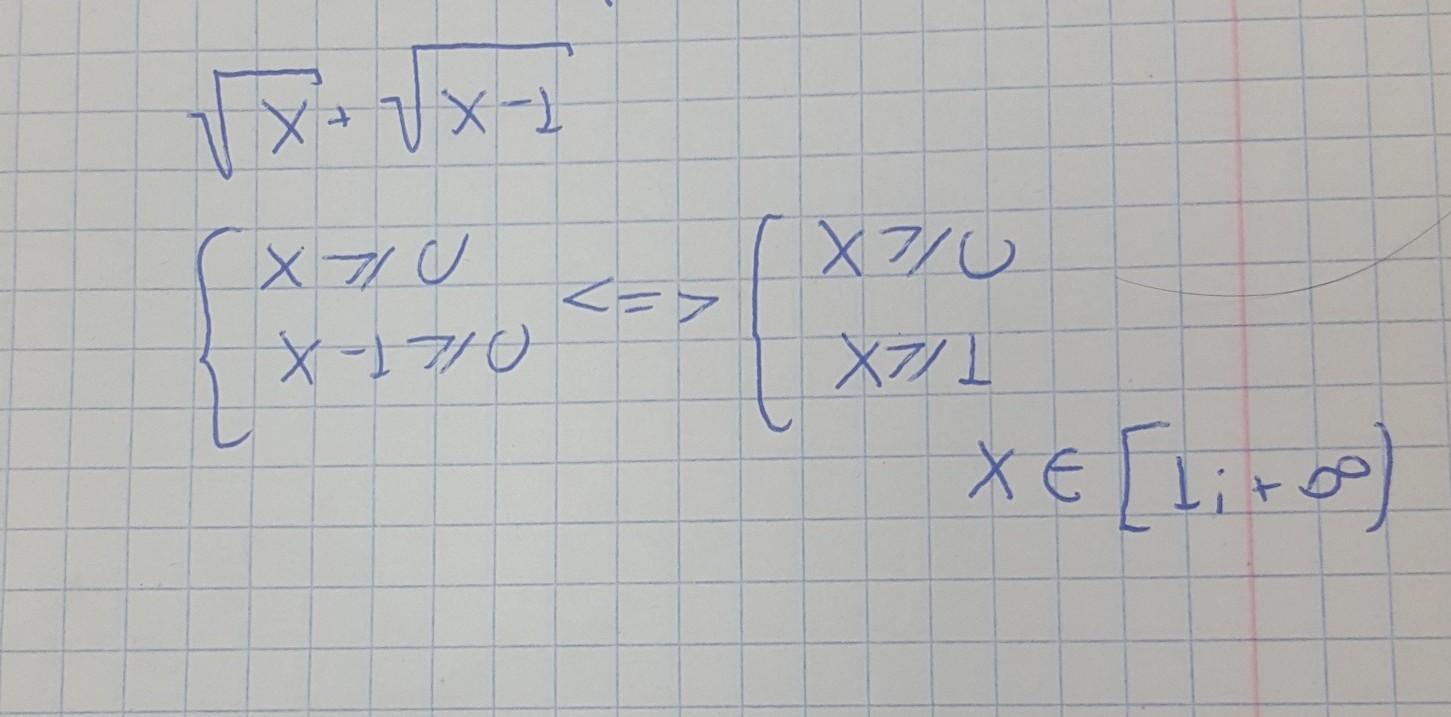 √x + √x-1
{ x ⩾ 0
x - 1 ⩾ 0 <=> { x ⩾ 0
x ⩾ 1
x ∈ [1; + ∞)